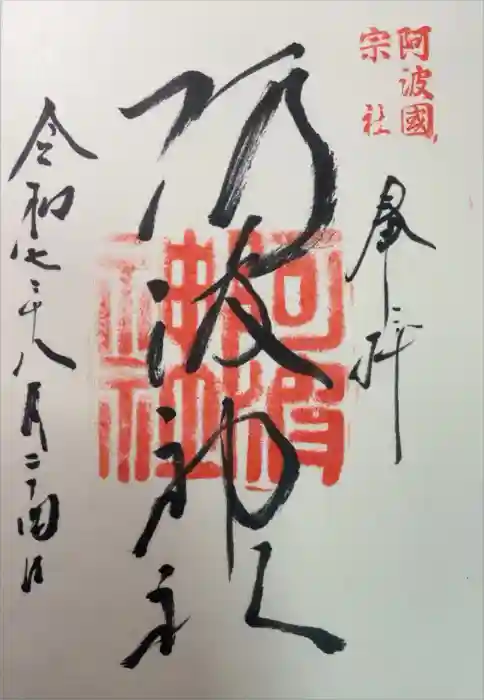 阿波國
宗社
奉拝
阿波神社
令和七年八月二十四日
阿波
神社